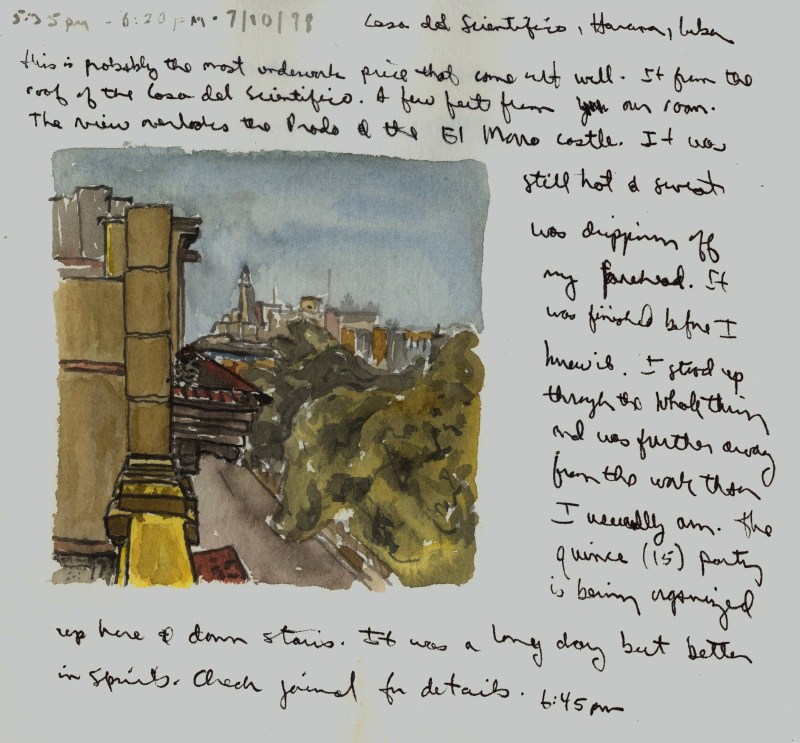 5:35 pm - 6:20 PM · 7/10/98 Casa del Scientifico, Havana, Cuba
This is probably the most underwork price that come out well. It from the
roof of the Casa del Scientifico. A few feet from our room.
The view overlooks the Prado & the El Morro castle. It was
still hot & sweat
was dripping off
my forehead. It
was finished before I
knew it. I stood up
through the whole thing
and was further away
from the work than
I usually am. The
quince (15) party
is being organized
up here & down stairs. It was a long day but better
in spirits. Check journal for details. 6:45 pm